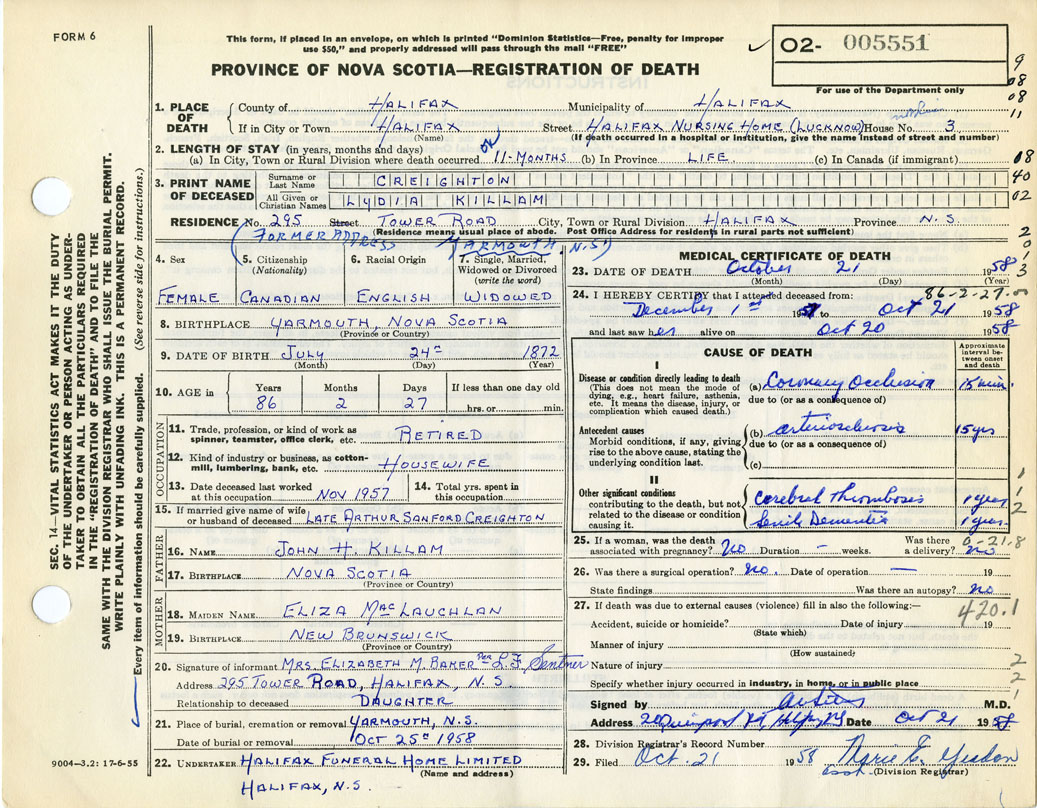 FORM 6
This form, if placed in an envelope, on which is printed "Dominion Statistics—Free, penalty for improper
use $50," and properly addressed will pass through the mail "FREE"
02- 005551
For use of the Department only
PROVINCE OF NOVA SCOTIA—REGISTRATION OF DEATH
9
08
08
11
08
40
02
2
0
1
3
SEC. 14—VITAL STATISTICS ACT MAKES IT THE DUTY
OF THE UNDERTAKER OR PERSON ACTING AS UNDER-
TAKER TO OBTAIN ALL THE PARTICULARS REQUIRED
IN THE "REGISTRATION OF DEATH" AND TO FILE THE
SAME WITH THE DIVISION REGISTRAR WHO SHALL ISSUE THE BURIAL PERMIT.
WRITE PLAINLY WITH UNFADING INK. THIS IS A PERMANENT RECORD.
Every item of information should be carefully supplied. (See reverse side for instructions.)
1. PLACE OF DEATH
County of HALIFAX Municipality of HALIFAX
If in City or Town HALIFAX Street HALIFAX NURSING HOME (LUCKNOW) House No. 3
(Name) (If death occurred in a hospital or institution, give the name instead of street and number)
2. LENGTH OF STAY (in years, months and days)
(a) In City, Town or Rural Division where death occurred 11-MONTHS (b) In Province LIFE (c) In Canada (if immigrant)
3. PRINT NAME OF DECEASED
Surname or Last Name CREIGHTON
All Given or Christian Names LYDIA KILLAM
RESIDENCE No. 295 Street TOWER ROAD City, Town or Rural Division HALIFAX Province N.S.
(Residence means usual place of abode. Post Office Address for residents in rural parts not sufficient)
(FORMER ADDRESS YARMOUTH, N.S.)
4. Sex
FEMALE
5. Citizenship
(Nationality)
CANADIAN
6. Racial Origin
ENGLISH
7. Single, Married, Widowed or Divorced
(write the word)
WIDOWED
8. BIRTHPLACE YARMOUTH, NOVA SCOTIA
(Province or Country)
9. DATE OF BIRTH JULY 24TH 1872
(Month) (Day) (Year)
10. AGE in
Years Months Days If less than one day old
86 2 27 hrs. or min.
OCCUPATION
11. Trade, profession, or kind of work as
spinner, teamster, office clerk, etc. RETIRED
12. Kind of industry or business, as cotton-
mill, lumbering, bank, etc. HOUSEWIFE
13. Date deceased last worked
at this occupation NOV 1957
14. Total yrs. spent in
this occupation
15. If married give name of wife
or husband of deceased LATE ARTHUR SANFORD CREIGHTON
FATHER
16. NAME JOHN H. KILLAM
17. BIRTHPLACE NOVA SCOTIA
(Province or Country)
MOTHER
18. MAIDEN NAME ELIZA MACLAUCHLAN
19. BIRTHPLACE NEW BRUNSWICK
(Province or Country)
20. Signature of informant MRS. ELIZABETH M. BAKER PER L.F. Sentner
Address 295 TOWER ROAD, HALIFAX, N.S.
Relationship to deceased DAUGHTER
21. Place of burial, cremation or removal YARMOUTH, N.S.
Date of burial or removal OCT 25TH 1958
22. UNDERTAKER HALIFAX FUNERAL HOME LIMITED
(Name and address)
HALIFAX, N.S.
9004—3.2: 17-6-55
MEDICAL CERTIFICATE OF DEATH
23. DATE OF DEATH October 21 1958
(Month) (Day) (Year)
86-2-27
24. I HEREBY CERTIFY that I attended deceased from:
December 1st 1957 to Oct 21 1958
and last saw her alive on Oct 20 1958
CAUSE OF DEATH
Approximate interval between onset and death
I
Disease or condition directly leading to death
(This does not mean the mode of
dying, e.g., heart failure, asthenia,
etc. It means the disease, injury, or
complication which caused death.)
(a) Coronary Occlusion 15 min.
due to (or as a consequence of)
Antecedent causes
Morbid conditions, if any, giving
rise to the above cause, stating the
underlying condition last.
(b) arteriosclerosis 15 yrs
due to (or as a consequence of)
(c)
II
Other significant conditions
contributing to the death, but not
related to the disease or condition
causing it.
Cerebral Thrombosis 1 year
Senile Dementia 1 year
1
1
2
25. If a woman, was the death
associated with pregnancy? No Duration — weeks. Was there
a delivery? no
0-21.8
26. Was there a surgical operation? No. Date of operation — 19
State findings Was there an autopsy? No
27. If death was due to external causes (violence) fill in also the following:—
420.1
Accident, suicide or homicide? Date of injury 19
(State which)
Manner of injury
(How sustained)
Nature of injury
Specify whether injury occurred in industry, in home, or in public place
2
2
1
Signed by M.D.
Address Date Oct 21 1958
28. Division Registrar's Record Number
29. Filed Oct. 21 1958
(Division Registrar)